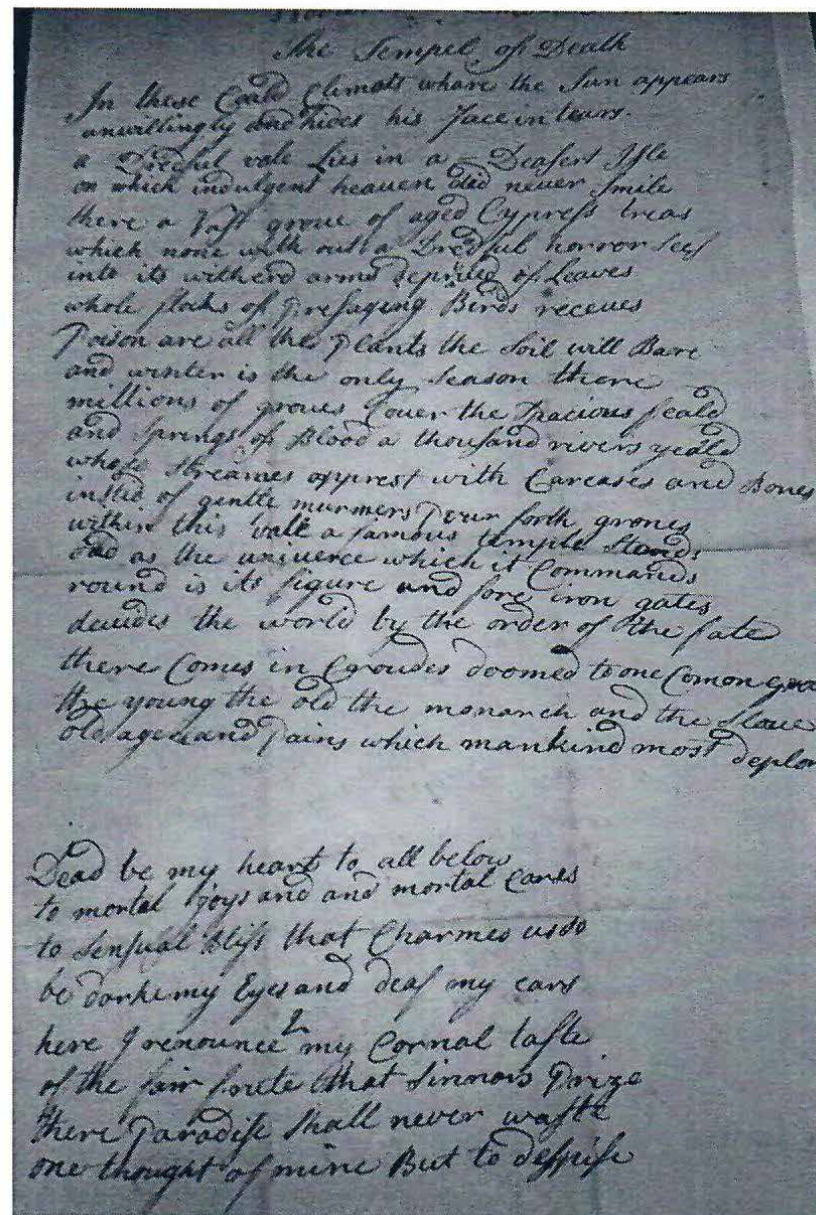 The Tempel of Death
In these Could Climats whare the Sun appears
unwillingly and hides his face in tears.
a Dredful vale Lies in a Deasert Isle
on which indulgent heaven did never smile
there a Vast groue of aged Cypress treas
which none with out a Dredful horror sees
into its witherd arms depriued of Leaves
whole floks of Presaging Birds receues
Poison are all the Plants the Soil will Bare
and winter is the only season there
millions of graues Couer the Spacious feald
and springs of Blood a thousand rivers yeald
whose streames opprest with Carcases and Bones
insted of gentle murmers Pour forth grones
within this Vale a famous temple stands
old as the univerce which it Commands
round is its figure and fore iron gates
deuides the world by the order of the fate
there Comes in Croudes doomed to one Comon
the young the old the monarch and the Slaue
old age and Pains which mankind most
Dead be my heart to all below
to mortal joys and and mortal Cares
to Sensual bliss that Charmes us so
be darke my Eyes and deaf my ears
here I renounce my Cornal taste
of the fair frute that sinnors Prize
there Paradise shall never waste
one thought of mine But to despise